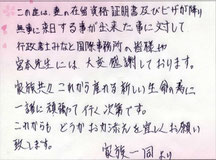 この度は、妻の在留資格証明書及びビザが降り
無事に来日する事が出来た事に対して
行政書士みなと国際事務所の皆様や
宮本先生には大変感謝しております。
家族共々これから産れる新しい生命の為に
一緒に頑張って行く次第です。
これからもどうかお力ぞえを宜しくお願い
致します。
家族一同より